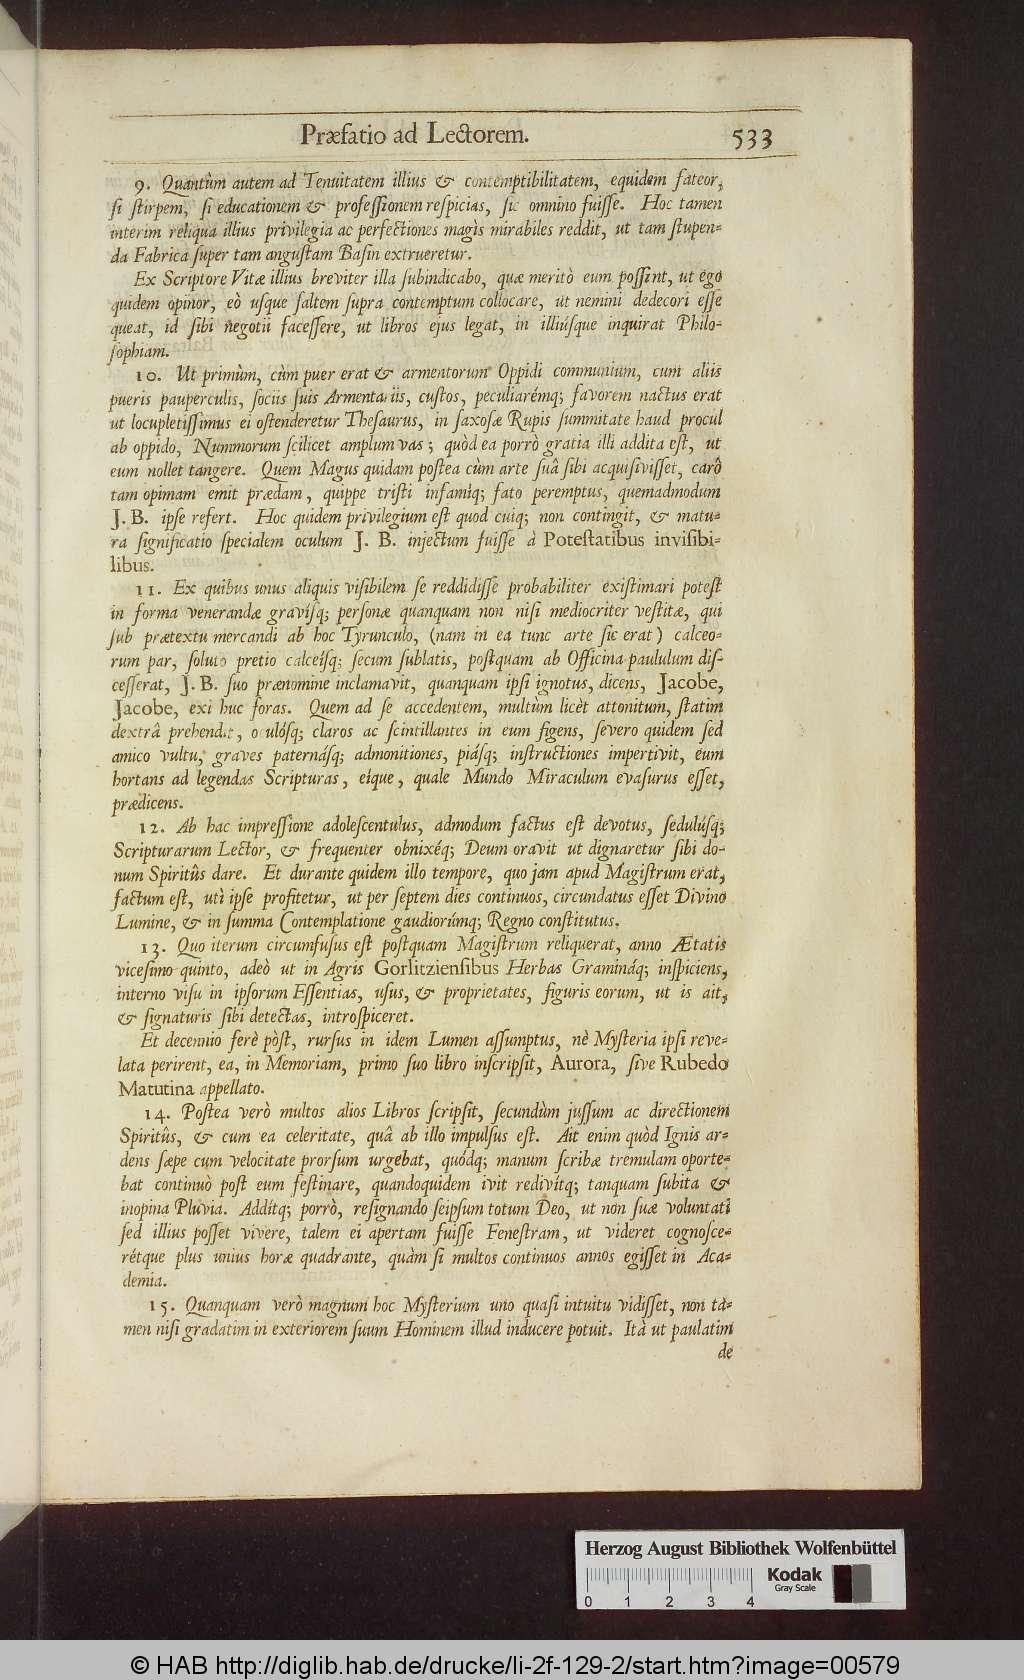 Præfatio ad Lectorem. 533
9. Quantùm autem ad Tenuitatem illius & contemptibilitatem, equidem fateor,
si stirpem, si educationem & professionem respicias, sic omnino fuisse. Hoc tamen
interim reliqua illius privilegia ac perfectiones magìs mirabiles reddit, ut tam stupen-
da Fabrica super tam angustam Basin extrueretur.
Ex Scriptore Vitæ illius breviter illa subindicabo, quæ meritò eum possint, ut ego
quidem opinor, eò usque saltem supra contemptum collocare, ut nemini dedecori esse
queat, id sibi negotii facessere, ut libros ejus legat, in illiúsque inquirat Philo-
sophiam.
10. Ut primùm, cùm puer erat & armentorum Oppidi communium, cum aliis
pueris pauperculis, sociis suis Armentariis, custos, peculiarémq; favorem nactus erat
ut locupletissimus ei ostenderetur Thesaurus, in saxosæ Rupis summitate haud procul
ab oppido, Nummorum scilicet amplum vas; quòd ea porrò gratia illi addita est, ut
eum nollet tangere. Quem Magus quidam postea cùm arte suâ sibi acquisivisset, carò
tam opimam emit prædam, quippe tristi infamíq; fato peremptus, quemadmodum
J. B. ipse refert. Hoc quidem privilegium est quod cuiq; non contingit, & matu-
ra significatio specialem oculum J. B. injectum fuisse à Potestatibus invisibi-
libus.
11. Ex quibus unus aliquis visibilem se reddidisse probabiliter existimari potest
in forma venerandæ gravísq; personæ quanquam non nisi mediocriter vestitæ, qui
sub prætextu mercandi ab hoc Tyrunculo, (nam in ea tunc arte sic erat) calceo-
rum par, soluto pretio calceísq; secum sublatis, postquam ab Officina paululum dis-
cesserat, J. B. suo prænomine inclamavit, quanquam ipsi ignotus, dicens, Jacobe,
Jacobe, exi huc foras. Quem ad se accedentem, multùm licèt attonitum, statim
dextrâ prehendit, oculósq; claros ac scintillantes in eum figens, severo quidem sed
amico vultu, graves paternásq; admonitiones, piásq; instructiones impertivit, eum
hortans ad legendas Scripturas, eique, quale Mundo Miraculum evasurus esset,
prædicens.
12. Ab hac impressione adolescentulus, admodum factus est devotus, sedulúsq;
Scripturarum Lector, & frequenter obnixéq; Deum oravit ut dignaretur sibi do-
num Spiritûs dare. Et durante quidem illo tempore, quo jam apud Magistrum erat,
factum est, utì ipse profitetur, ut per septem dies continuos, circundatus esset Divino
Lumine, & in summa Contemplatione gaudiorúmq; Regno constitutus.
13. Quo iterum circumfusus est postquam Magistrum reliquerat, anno Ætatis
vicesimo quinto, adeò ut in Agris Gorlitziensibus Herbas Gramináq; inspiciens,
interno visu in ipsorum Essentias, usus, & proprietates, figuris eorum, ut is ait,
& signaturis sibi detectas, introspiceret.
Et decennio ferè pòst, rursus in idem Lumen assumptus, nè Mysteria ipsi reve-
lata perirent, ea, in Memoriam, primo suo libro inscripsit, Aurora, sive Rubedo
Matutina appellato.
14. Postea verò multos alios Libros scripsit, secundùm jussum ac directionem
Spiritûs, & cum ea celeritate, quâ ab illo impulsus est. Ait enim quòd Ignis ar-
dens sæpe cum velocitate prorsum urgebat, quódq; manum scribæ tremulam oporte-
bat continuò post eum festinare, quandoquidem ivit redivítq; tanquam subita &
inopina Pluvia. Addítq; porrò, resignando seipsum totum Deo, ut non suæ voluntati
sed illius posset vivere, talem ei apertam fuisse Fenestram, ut videret cognosce-
rétque plus unius horæ quadrante, quàm si multos continuos annos egisset in Aca-
demia.
15. Quanquam verò magnum hoc Mysterium uno quasi intuitu vidisset, non ta-
men nisi gradatim in exteriorem suum Hominem illud inducere potuit. Ità ut paulatim
de
Herzog August Bibliothek Wolfenbüttel
Kodak
Gray Scale
0 1 2 3 4
© HAB http://diglib.hab.de/drucke/li-2f-129-2/start.htm?image=00579